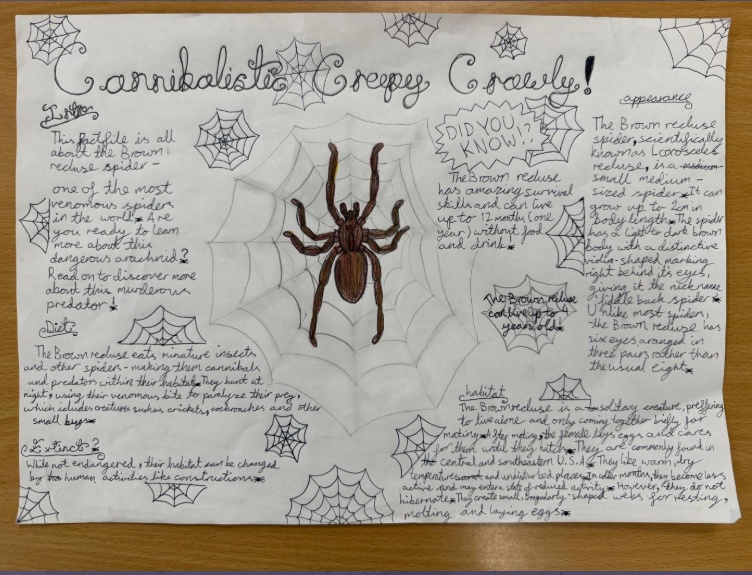 Cannibalistic Creepy Crawly!
Intro
This factfile is all
about the Brown
recluse spider -
one of the most
venomous spiders
in the world. Are
you ready to learn
more about this
dangerous arachnid?
Read on to discover more
about this murderous
predator!
Diet
The Brown recluse eats minature insects
and other spiders - making them cannibals
and predators within their habitat. They hunt at
night, using their venomous bite to paralyze their prey,
which icludes creatures such as crickets, cockroaches and other
small bugs.
Extinct?
While not endangered, their habitat can be changed
by human activities like constructions.
DID YOU
KNOW!?
The Brown recluse
has amazing survival
skills and can live
up to 12 months (one
year) without food
and drink.
The Brown recluse
can live up to 4
years old.
appearance
The Brown recluse
spider, scientifically
known as Loxosceles
recluse, is a medium
small medium -
sized spider. It can
grow up to 2cm in
body length. The spider
has a light to dark brown
body with a distinctive
violin-shaped marking
right behind it's eyes,
giving it the nickname
fiddle back spider.
Unlike most spiders,
the Brown recluse has
six eyes aranged in
three pairs rather than
the usual eight.
habitat
The Brown recluse is a solitary creature, preffering
to live alone and only coming together briefly for
mating. After mating, the female lays eggs and cares
for them until they hatch. They are commonly found in
the central and southeastern U.S.A. They like warm, dry
temperatures and undisturbed places. In colder months, they become less
active and may enter a state of reduced activity. However, they do not
hibernate. They create small, irregularly-shaped webs for resting,
molting and laying eggs.